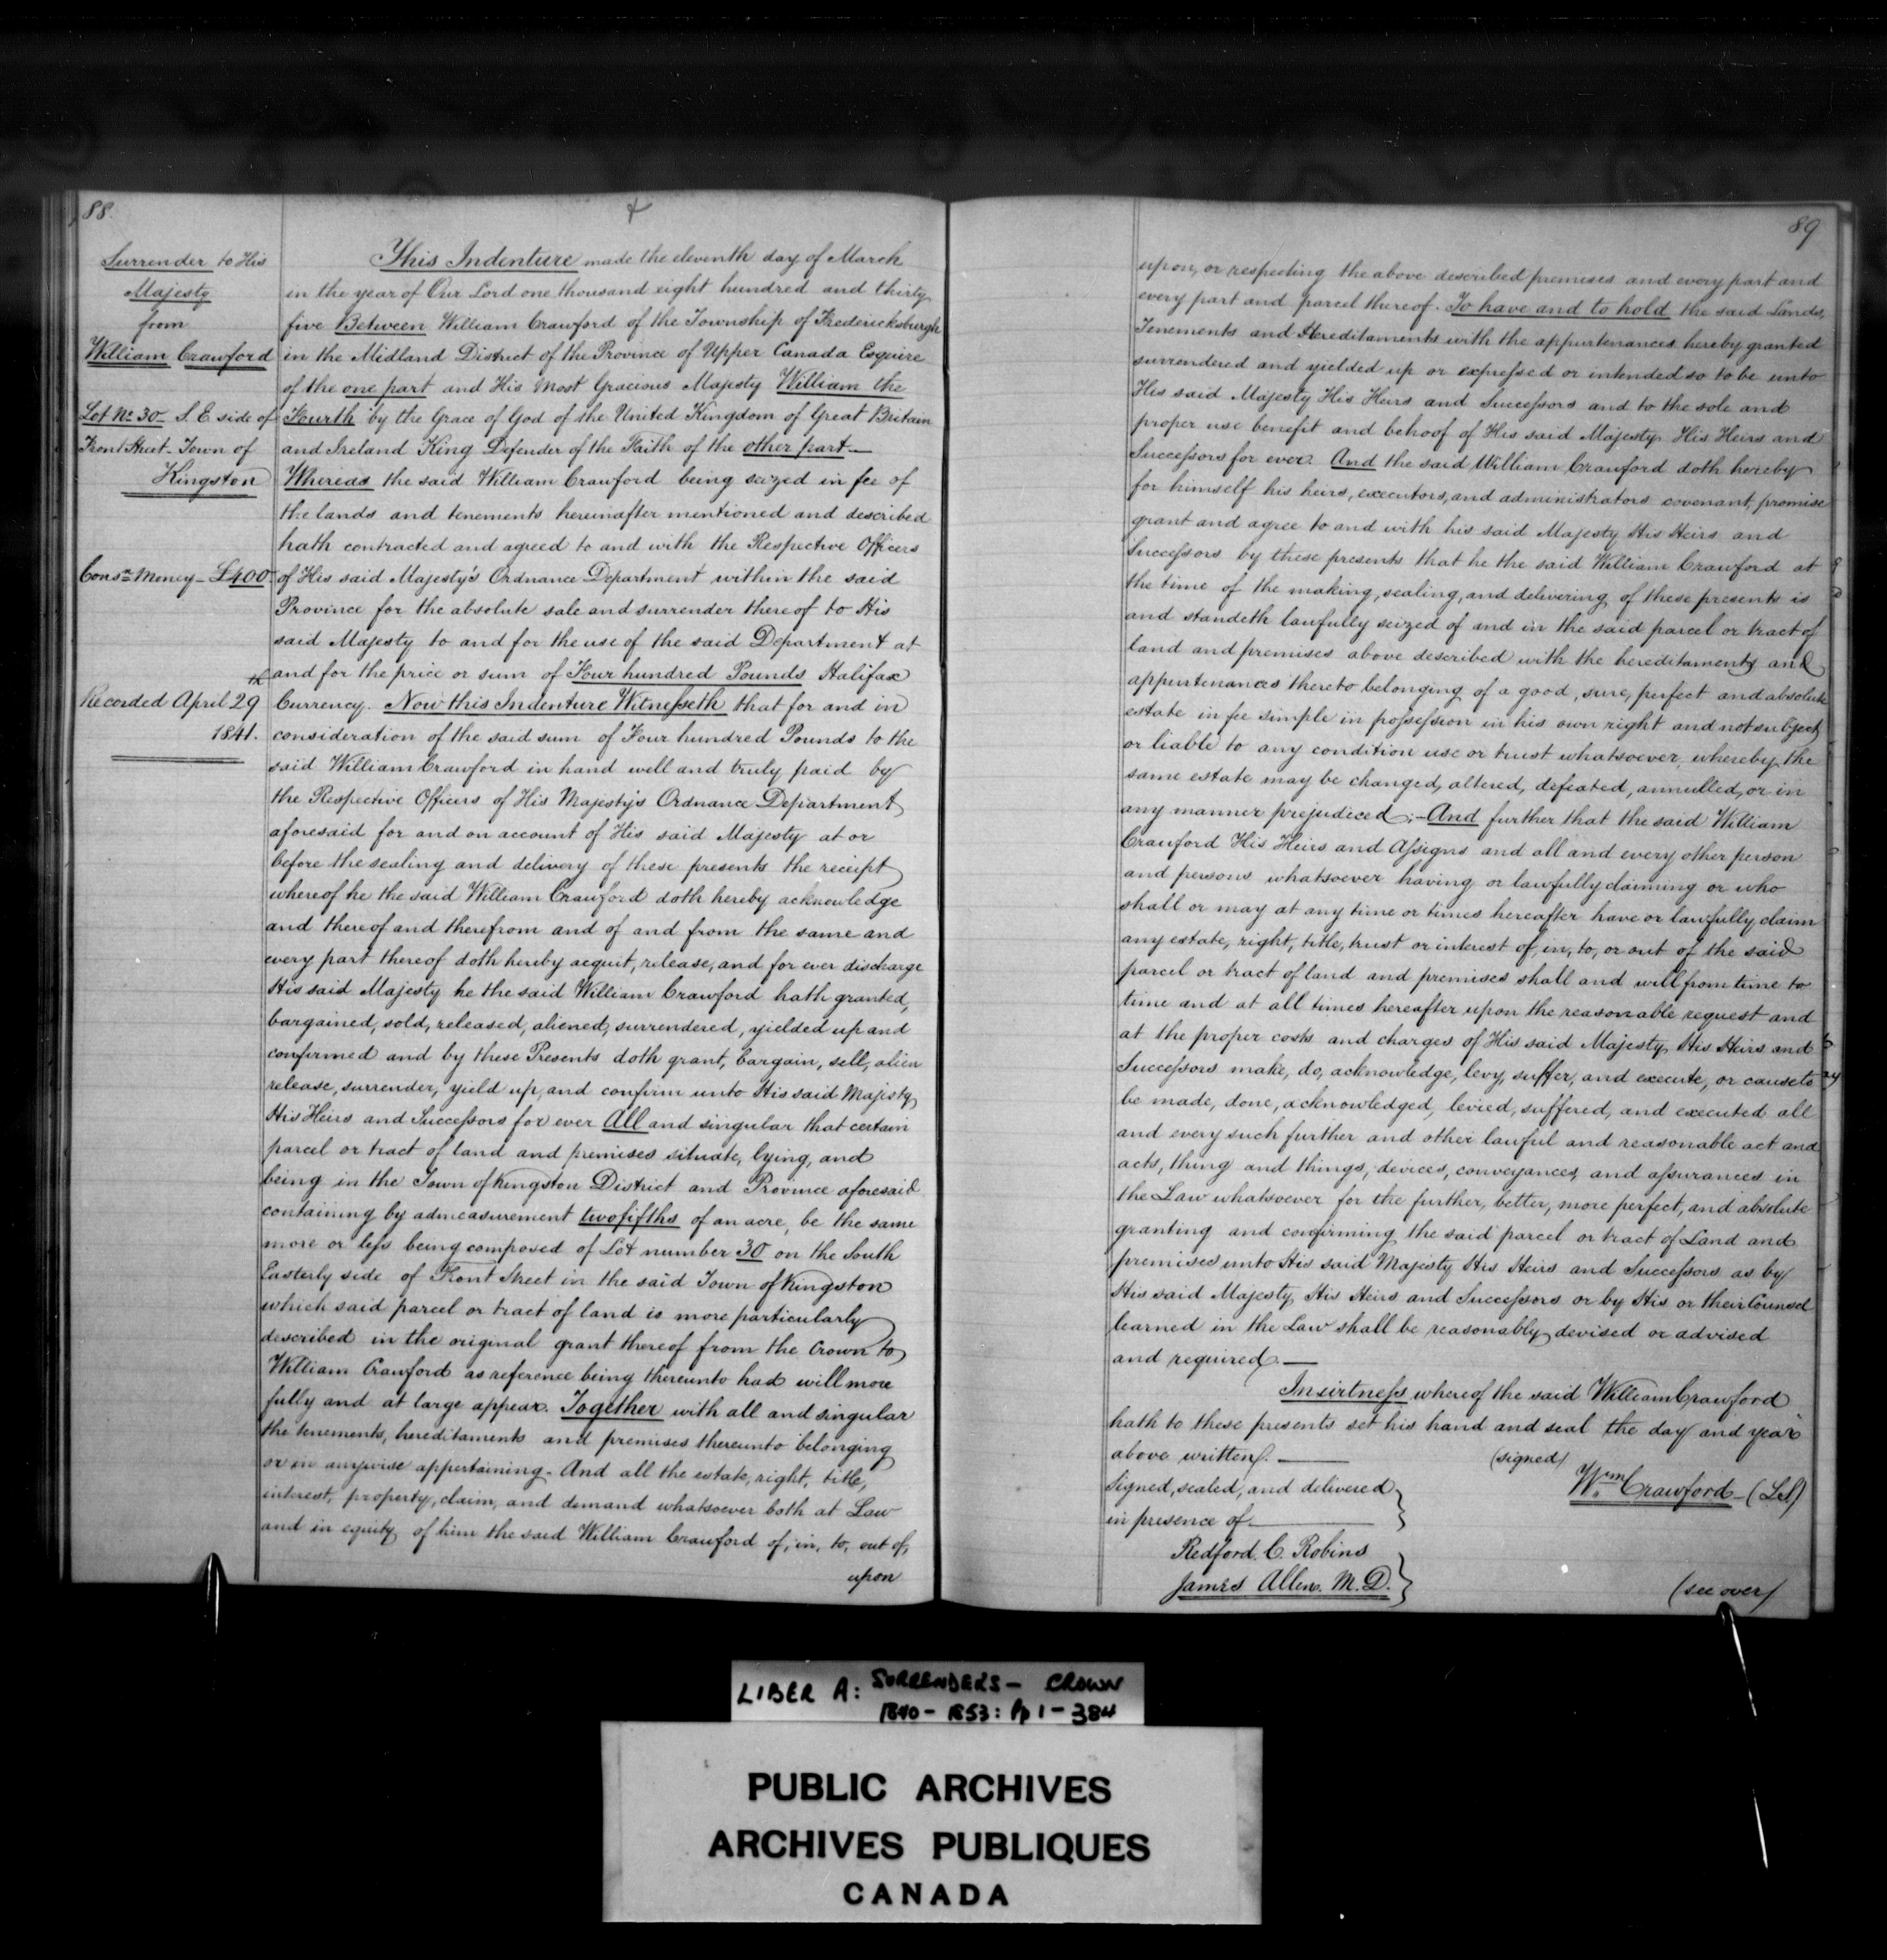 88.
Surrender to His
Majesty
from
William Crawford
Lot No. 30 S. E. side of
Front Street - Town of
Kingston
Consn. Money - £400
Recorded April 29th
1841.
This Indenture made the eleventh day of March
in the year of Our Lord one thousand eight hundred and thirty
five Between William Crawford of the Township of Fredericksburgh
in the Midland District of the Province of Upper Canada Esquire
of the one part and His Most Gracious Majesty William the
Fourth by the Grace of God of the United Kingdom of Great Britain
and Ireland King Defender of the Faith of the other part—
Whereas the said William Crawford being seized in fee of
the lands and tenements hereinafter mentioned and described
hath contracted and agreed to and with the Respective Officers
of His said Majesty's Ordnance Department within the said
Province for the absolute sale and surrender thereof to His
said Majesty to and for the use of the said Department at
and for the price or sum of Four hundred Pounds Halifax
Currency. Now this Indenture Witnesseth that for and in
consideration of the said sum of Four hundred Pounds to the
said William Crawford in hand well and truly paid by
the Respective Officers of His Majesty's Ordnance Department
aforesaid for and on account of His said Majesty at or
before the sealing and delivery of these presents the receipt
whereof he the said William Crawford doth hereby acknowledge
and thereof and therefrom and of and from the same and
every part thereof doth hereby acquit, release, and for ever discharge
His said Majesty he the said William Crawford hath granted,
bargained, sold, released, aliened, surrendered, yielded up and
confirmed and by these Presents doth grant, bargain, sell, alien
release, surrender, yield up, and confirm unto His said Majesty
His Heirs and Successors for ever All and singular that certain
parcel or tract of land and premises situate, lying, and
being in the Town of Kingston District and Province aforesaid
containing by admeasurement two fifths of an acre, be the same
more or less being composed of Lot number 30 on the South
Easterly side of Front Street in the said Town of Kingston
which said parcel or tract of land is more particularly
described in the original grant thereof from the Crown to
William Crawford as reference being thereunto had will more
fully and at large appear. Together with all and singular
the tenements, hereditaments and premises thereunto belonging
or in anywise appertaining - And all the estate, right, title,
interest, property, claim, and demand whatsoever both at Law
and in equity of him the said William Crawford of, in, to, out of,
upon
89
upon, or respecting the above described premises and every part and
every part and parcel thereof. To have and to hold the said Lands,
Tenements and Hereditaments with the appurtenances hereby granted
surrendered and yielded up or expressed or intended so to be unto
His said Majesty His Heirs and Successors and to the sole and
proper use benefit and behoof of His said Majesty His Heirs and
Successors for ever. And the said William Crawford doth hereby
for himself his heirs, executors, and administrators covenant, promise
grant and agree to and with his said Majesty His Heirs and
Successors by these presents that he the said William Crawford at
the time of the making, sealing, and delivering of these presents is
and standeth lawfully seized of and in the said parcel or tract of
land and premises above described with the hereditaments and
appurtenances thereto belonging of a good, sure, perfect and absolute
estate in fee simple in possession in his own right and not subject
or liable to any condition use or trust whatsoever, whereby the
same estate may be changed, altered, defeated, annulled, or in
any manner prejudiced;- And further that the said William
Crawford His Heirs and Assigns and all and every other person
and persons whatsoever having or lawfully claiming or who
shall or may at any time or times hereafter have or lawfully claim
any estate, right, title, trust or interest of, in, to, or out of the said
parcel or tract of land and premises shall and will from time to
time and at all times hereafter upon the reasonable request and
at the proper costs and charges of His said Majesty His Heirs and
Successors make, do, acknowledge, levy, suffer, and execute, or cause to
be made, done, acknowledged, levied, suffered, and executed all
and every such further and other lawful and reasonable act and
acts, thing and things, devices, conveyances, and assurances in
the Law whatsoever for the further, better, more perfect, and absolute
granting and confirming the said parcel or tract of Land and
premises unto His said Majesty His Heirs and Successors as by
His said Majesty His Heirs and Successors or by His or their Counsel
learned in the Law shall be reasonably devised or advised
and required.—
In witness whereof the said William Crawford
hath to these presents set his hand and seal the day and year
above written.—
(signed)
Wm. Crawford - (LS)
Signed, sealed, and delivered
in presence of
Redford. C. Robins
James Allen. M. D.
(see over)
LIBER A: SURRENDERS - CROWN
1840 - 1853: Pp 1 - 384
PUBLIC ARCHIVES
ARCHIVES PUBLIQUES
CANADA